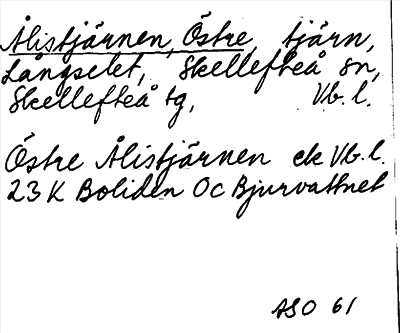 Ålistjärnen, Östre, tjärn,
Långselet, Skellefteå sn,
Skellefteå tg, Vb. l.
Östre Ålistjärnen ek Vb. l.
23 K Boliden Oc Bjurvattnet
ASO 61